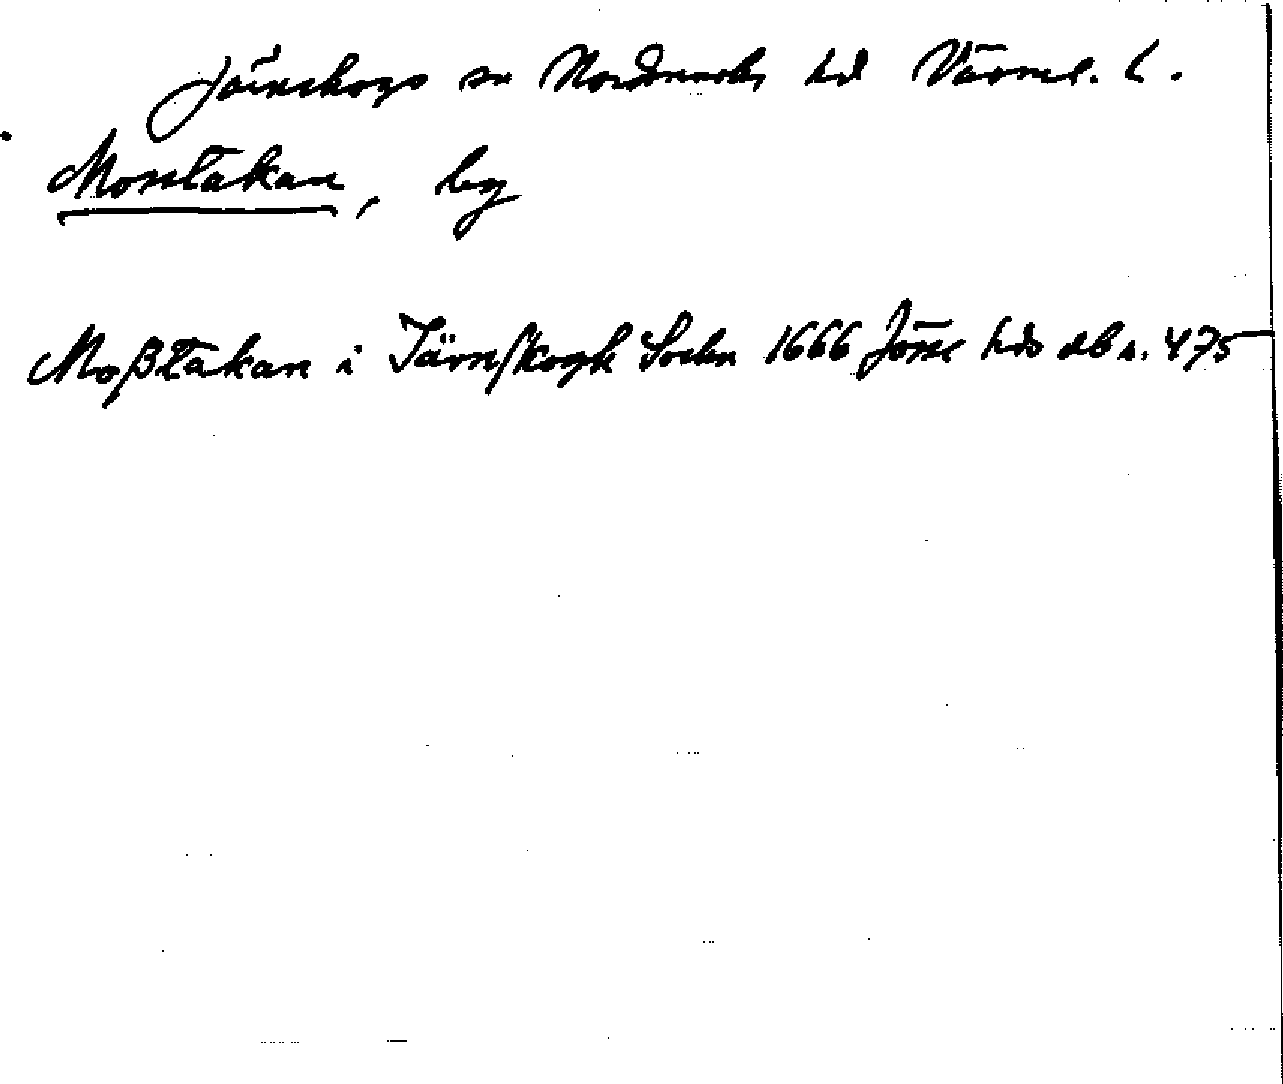 Järnskogs sn Nordmarks hd Värml. l.
Mosstakan, by
Moßtakan i Järnskogh Sochn 1666 Jösse hds db n. 475